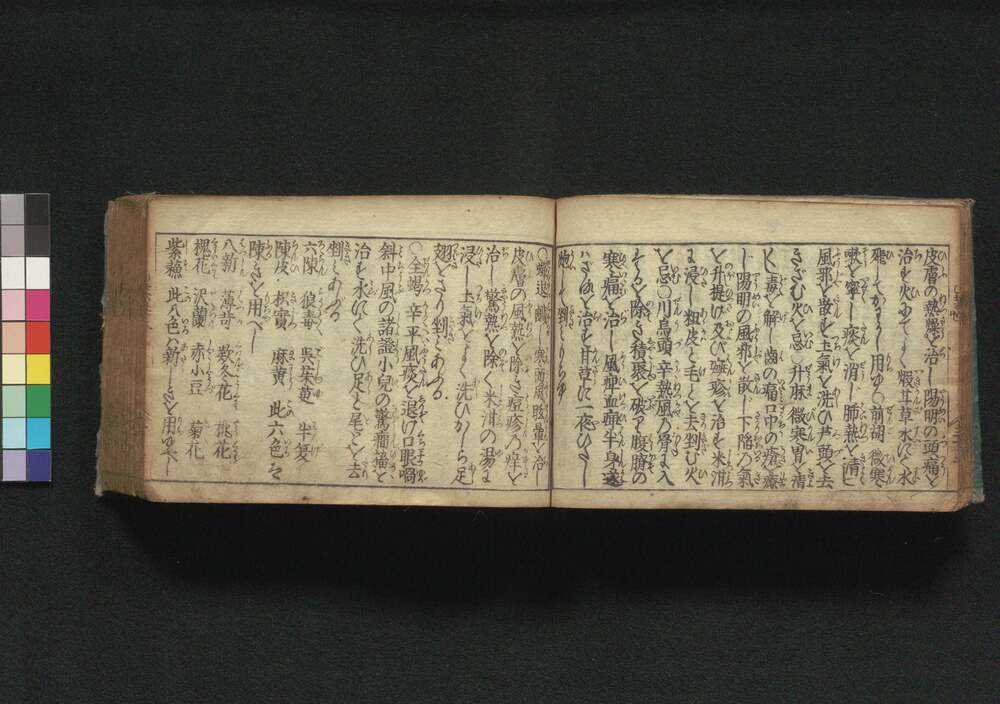 皮膚の熱燥を治し陽明の頭痛を
治す火にてよく煆甘草水にて水
飛してかはかし用ゆ〇前胡 微寒
嗽を寧し痰を消し肺熱を清し
風邪を散す土氣を洗ひ芦頭を去
きざむ火を忌〇升麻 微寒胃を清
く毒を解し歯の痛口中の瘡を療
し陽明の風邪を散し下陥の氣
を升提け及び斑疹を治す米泔
に浸し粗皮と毛とを去刻む火
を忌〇川烏頭 辛熱風の骨に入
を除き積聚を破り腹臍の
寒痛を治し風痺血痛半身遂
はざるを治す甘草に一夜ひたし
炮して刻
〇蟬退 鹹し寒
皮膚の風熱を除き痘疹の痒を
治し驚熱を除く米泔の湯に
浸し土氣をよく洗ひからし足
翅をさり刻こあふる
〇全蝎 辛平風痰を退け口眼喎
斜中風の諸證小兒の驚癇搐を
治す水にて洗ひ足と尾とを去
刻こあぶる
六陳 狼毒 呉茱萸 半夏
陳皮 枳實 麻黄 此六色は
陳きを用べし
八新 薄苛 款冬花 桃花
槐花 沢蘭 赤小豆 菊花
紫蘓 此八色は新しきを用ゆべし